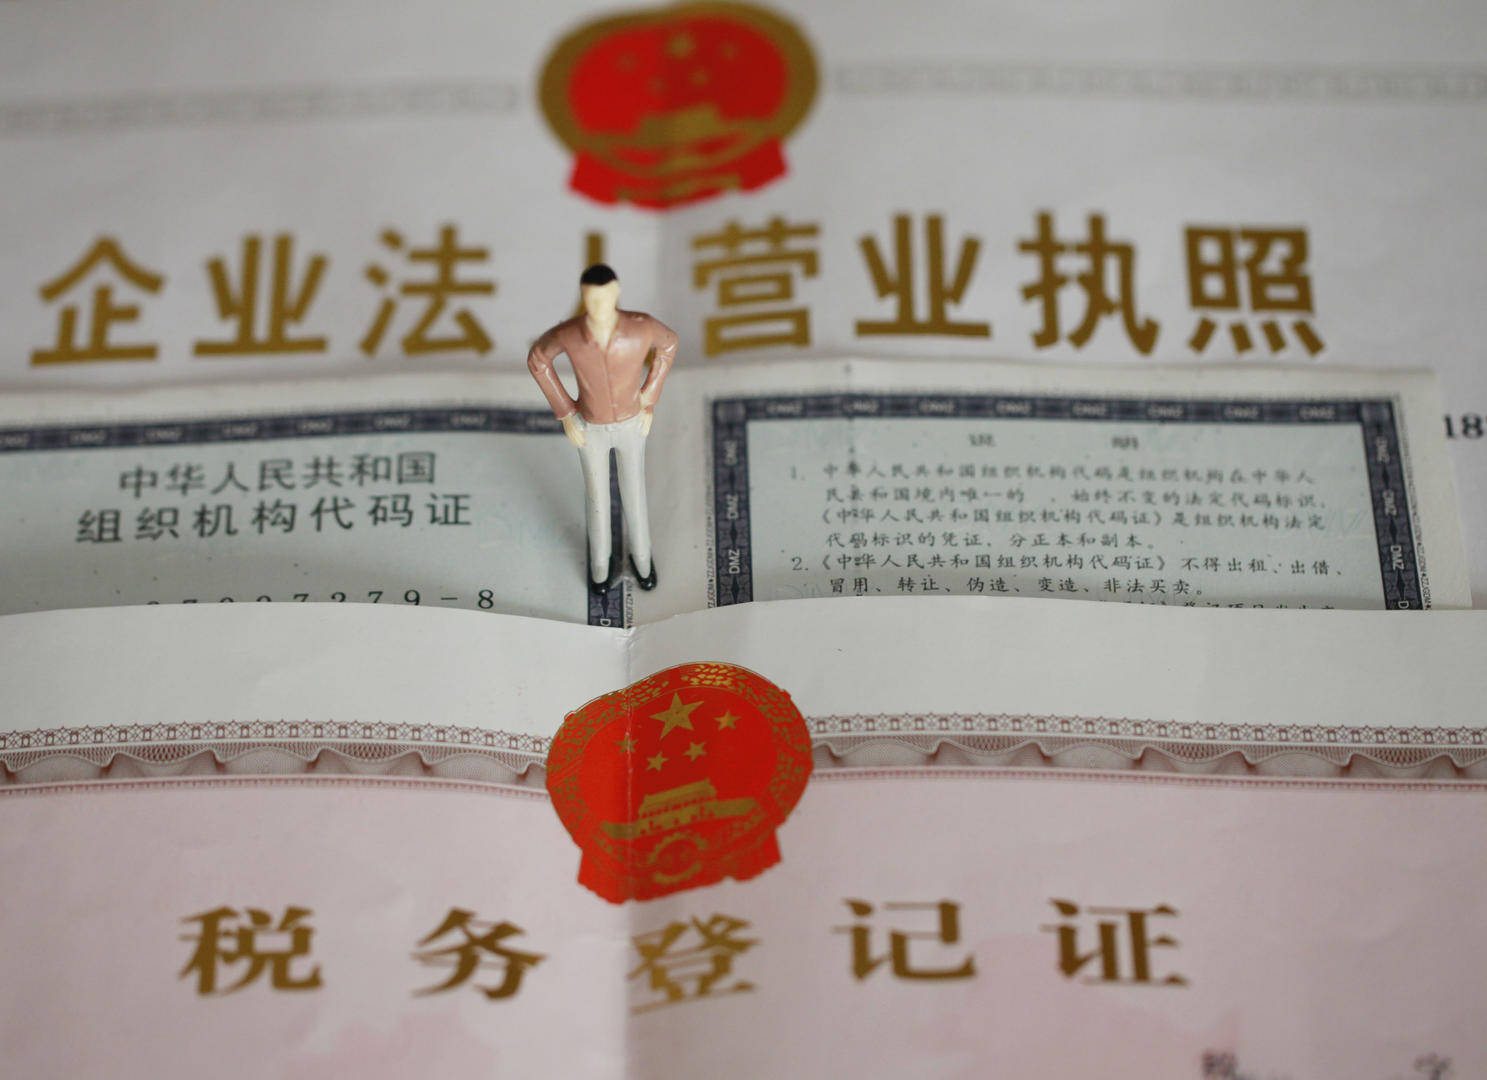 企业法人营业执照
中华人民共和国
组织机构代码证
7279-8
说 明
1. 中华人民共和国组织机构代码是组织机构在中华人
民共和国境内唯一的 、始终不变的法定代码标识,
《中华人民共和国组织机构代码证》是组织机构法定
代码标识的凭证、分正本和副本。
2. 《中华人民共和国组织机构代码证》不得出租、出借、
冒用、转让、伪造、变造、非法买卖。
18
税务登记证
字